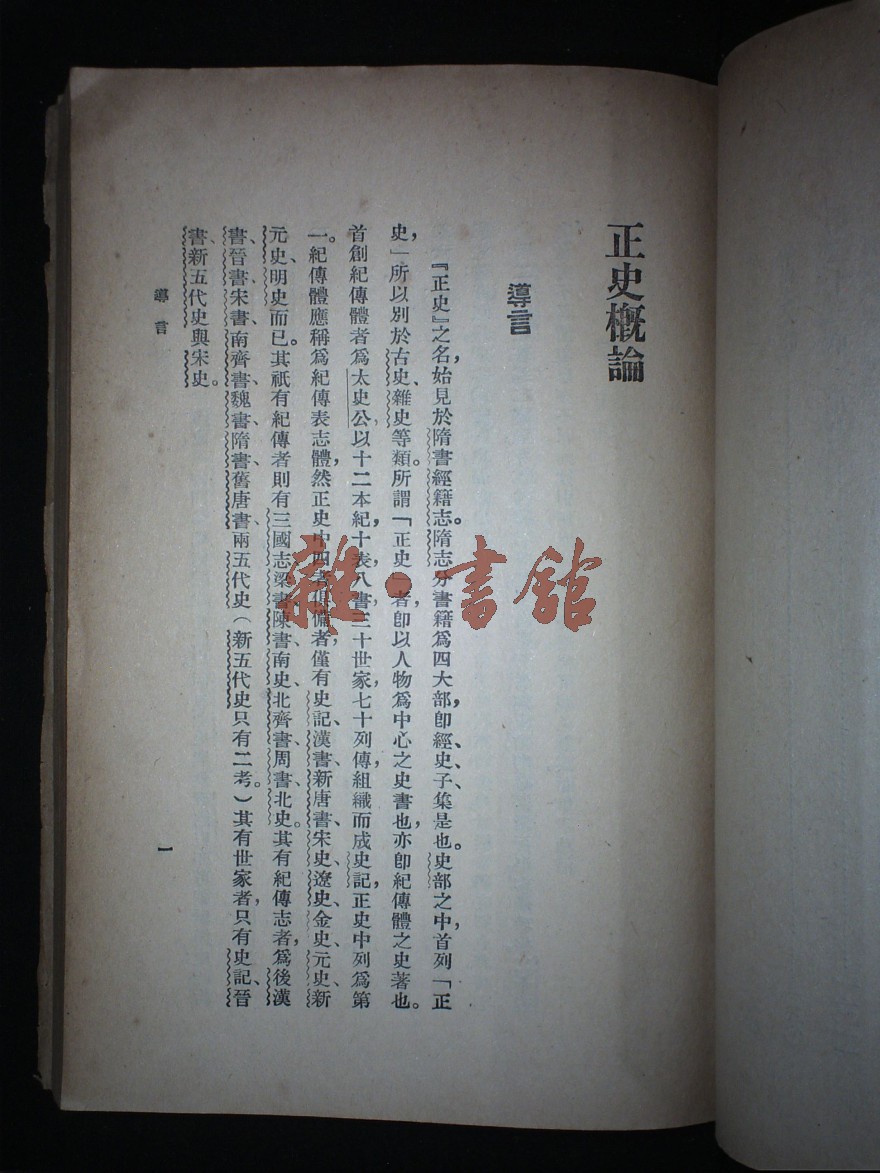 正史概論
導言
『正史』之名，始見於隋書經籍志。隋志分書籍爲四大部，卽經、史、子、集是也。史部之中，首列「正
史，」所以別於古史、雜史等類。所謂「正史」者卽以人物爲中心之史書也，亦卽紀傳體之史著也。
首創紀傳體者爲太史公，以十二本紀，十表，八書，三十世家，七十列傳組織而成史記，正史中列爲第
一。紀傳體應稱爲紀傳表志體，然正史中四者俱備者，僅有史記、漢書、新唐書、宋史、遼史、金史、元史、新
元史、明史而已。其祇有紀傳者則有三國志、梁書、陳書、南史、北齊書、周書、北史。其有紀傳志者，爲後漢
書、晉書、宋書、南齊書、魏書、隋書、舊唐書、兩五代史（新五代史只有二考。）其有世家者，只有史記、晉
書、新五代史與宋史。
導言
一
雜·書館